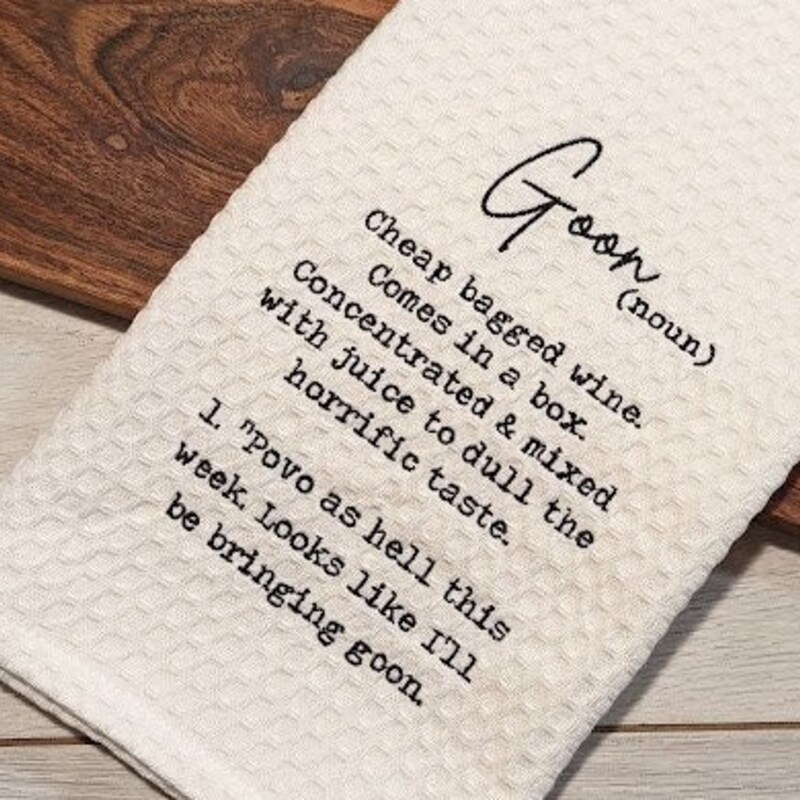 Goon
(noun)
Cheap bagged wine.
Comes in a box.
Concentrated & mixed
with juice to dull the
horrific taste.
1. "Povo as hell this
week. Looks like I'll
be bringing goon.